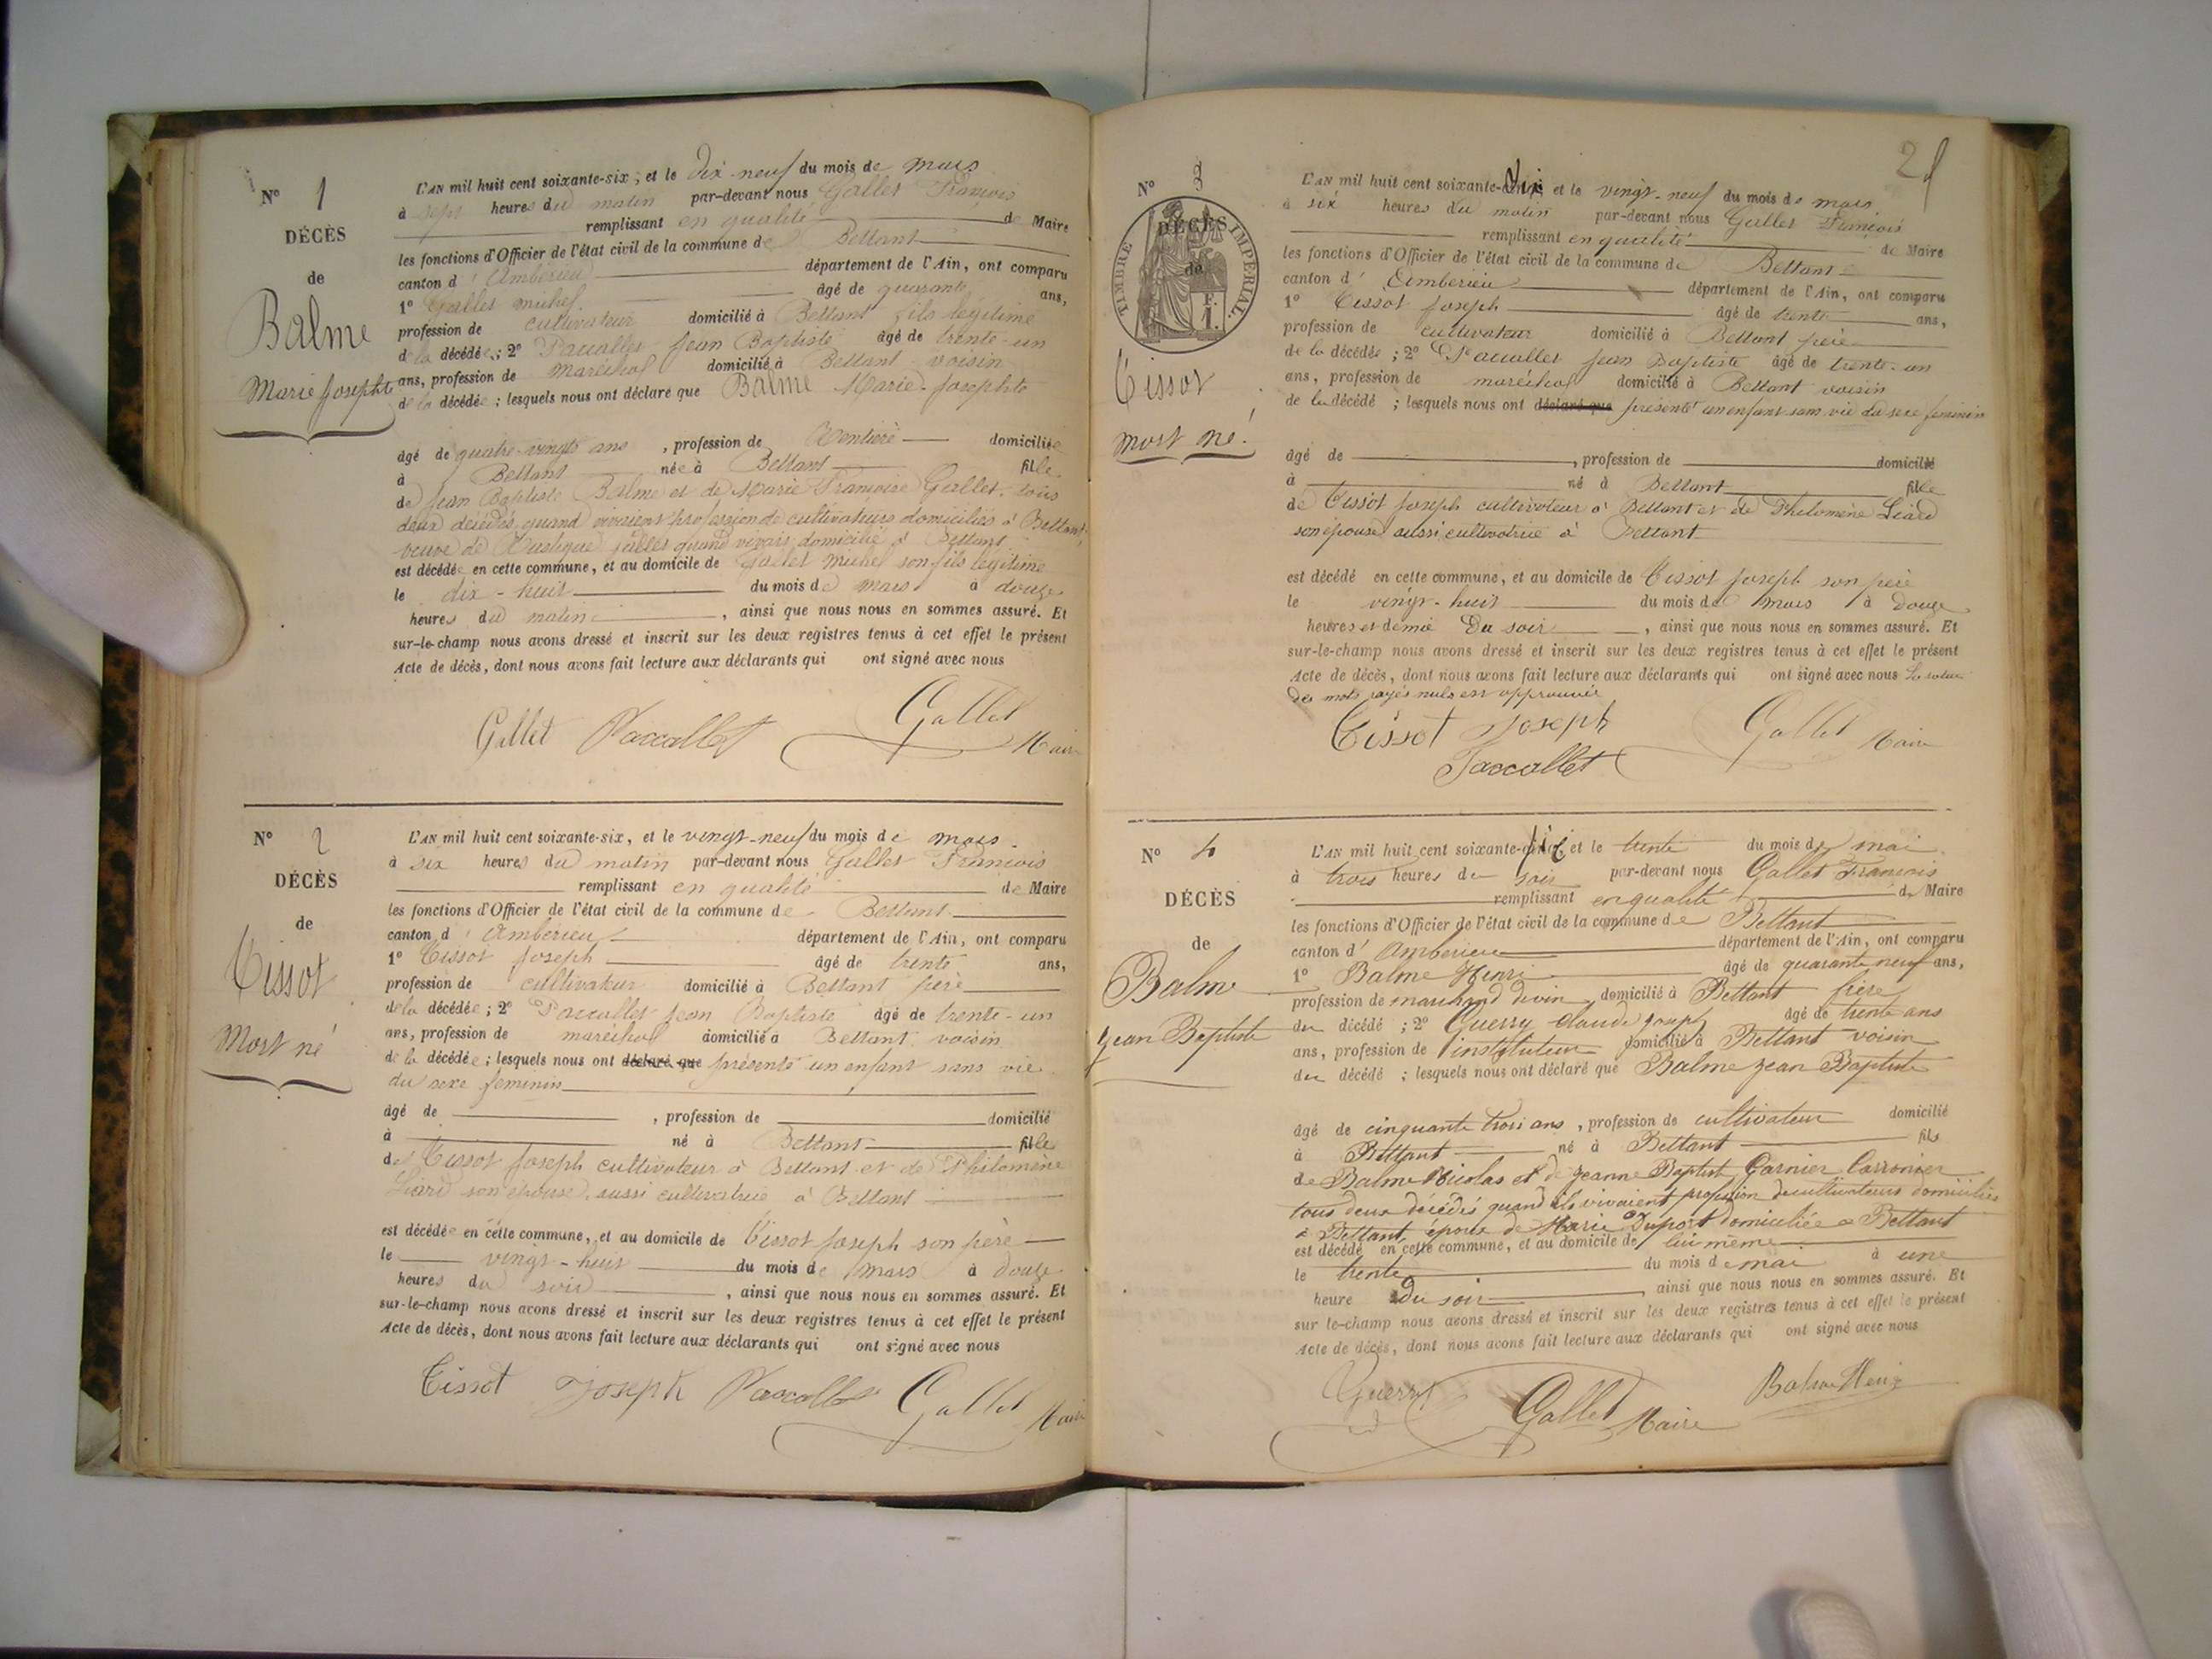 N° 1
DÉCÈS
de
Balme
Marie Josephte
L'AN mil huit cent soixante-six, et le dix-neuf du mois de mars
à sept heures du matin par-devant nous Gallet François
remplissant en qualité de Maire
les fonctions d'Officier de l'état civil de la commune de Bettant
canton d'Ambérieu département de l'Ain, ont comparu
1° Gallet Michel âgé de quarante ans,
profession de cultivateur domicilié à Bettant fils légitime
de la décédée; 2° Paccallet Jean Baptiste âgé de trente-un
ans, profession de maréchal domicilié à Bettant voisin
de la décédée; lesquels nous ont déclaré que Balme Marie-Josephte
âgé de quatre-vingts ans, profession de Rentière domiciliée
à Bettant née à Bettant fille
de Jean Baptiste Balme et de Marie Françoise Gallet tous
deux décédés, quand vivaient profession de cultivateurs domiciliés à Bettant,
veuve de Gallet quand vivait domicilié à Bettant
est décédée en cette commune, et au domicile de Gallet Michel son fils légitime
le dix-huit du mois de mars à douze
heures du matin, ainsi que nous nous en sommes assuré. Et
sur-le-champ nous avons dressé et inscrit sur les deux registres tenus à cet effet le présent
Acte de décès, dont nous avons fait lecture aux déclarants qui ont signé avec nous
Gallet Paccallet Gallet Maire
N° 2
DÉCÈS
de
Tissot
Mort né
L'AN mil huit cent soixante-six, et le vingt-neuf du mois de mars
à six heures du matin par-devant nous Gallet François
remplissant en qualité de Maire
les fonctions d'Officier de l'état civil de la commune de Bettant
canton d'Ambérieu département de l'Ain, ont comparu
1° Tissot Joseph âgé de trente ans,
profession de cultivateur domicilié à Bettant père
de la décédée; 2° Paccallet Jean Baptiste âgé de trente-un
ans, profession de maréchal domicilié à Bettant voisin
de la décédée; lesquels nous ont déclaré que présenté un enfant sans vie
du sexe féminin
âgé de , profession de domicilié
à né à Bettant fille
de Tissot Joseph cultivateur à Bettant et de Philomène
Liard son épouse aussi cultivatrice à Bettant
est décédée en cette commune, et au domicile de Tissot Joseph son père
le vingt-huit du mois de mars à douze
heures du soir, ainsi que nous nous en sommes assuré. Et
sur-le-champ nous avons dressé et inscrit sur les deux registres tenus à cet effet le présent
Acte de décès, dont nous avons fait lecture aux déclarants qui ont signé avec nous
Tissot Joseph Paccallet Gallet Maire
N° 3
TIMBRE IMPÉRIAL.
DÉCÈS
de
F.
1.
Tissot
mort né.
L'AN mil huit cent soixante-six et le vingt-neuf du mois de mars
à six heures du matin par-devant nous Gallet François
remplissant en qualité de Maire
les fonctions d'Officier de l'état civil de la commune de Bettant
canton d'Ambérieu département de l'Ain, ont comparu
1° Tissot Joseph âgé de trente ans,
profession de cultivateur domicilié à Bettant père
de la décédée; 2° Paccallet Jean Baptiste âgé de trente-un
ans, profession de maréchal domicilié à Bettant voisin
de la décédé; lesquels nous ont déclaré que présenté un enfant sans vie du sexe féminin
âgé de , profession de domicilié
à né à Bettant fille
de Tissot Joseph cultivateur à Bettant et de Philomène Liard
son épouse aussi cultivatrice à Bettant
est décédé en cette commune, et au domicile de Tissot Joseph son père
le vingt-huit du mois de mars à douze
heures et demie du soir, ainsi que nous nous en sommes assuré. Et
sur-le-champ nous avons dressé et inscrit sur les deux registres tenus à cet effet le présent
Acte de décès, dont nous avons fait lecture aux déclarants qui ont signé avec nous
des mots rayés nuls est
Tissot Joseph Gallet Maire
Paccallet
N° 4
DÉCÈS
de
Balme
Jean Baptiste
L'AN mil huit cent soixante-six et le trente du mois de mai
à trois heures du soir par-devant nous Gallet François
remplissant en qualité de Maire
les fonctions d'Officier de l'état civil de la commune de Bettant
canton d'Amberieu département de l'Ain, ont comparu
1° Balme Henri âgé de quarante neuf ans,
profession de marchand de vin domicilié à Bettant frère
du décédé; 2° Guerry Claude Joseph âgé de trente ans
ans, profession de instituteur domicilié à Bettant voisin
du décédé; lesquels nous ont déclaré que Balme Jean Baptiste
âgé de cinquante trois ans, profession de cultivateur domicilié
à Bettant né à Bettant fils
de Balme Nicolas et de Jeanne Baptiste Garnier
tous deux décédés quand ils vivaient profession de cultivateurs domiciliés
à Bettant, époux de Marie Duport domiciliée à Bettant
est décédé en cette commune, et au domicile de lui même
le trente du mois de mai à une
heure du soir, ainsi que nous nous en sommes assuré. Et
sur le-champ nous avons dressé et inscrit sur les deux registres tenus à cet effet le présent
Acte de décès, dont nous avons fait lecture aux déclarants qui ont signé avec nous
Guerry Gallet Maire Balme Henri